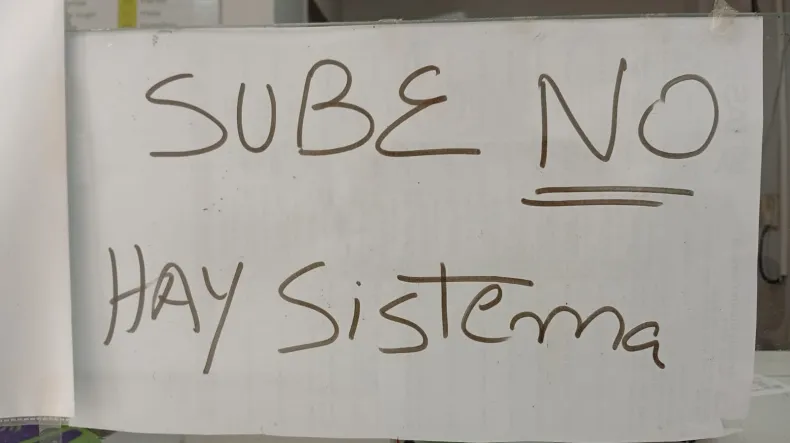 SUBE NO
HAY Sistema